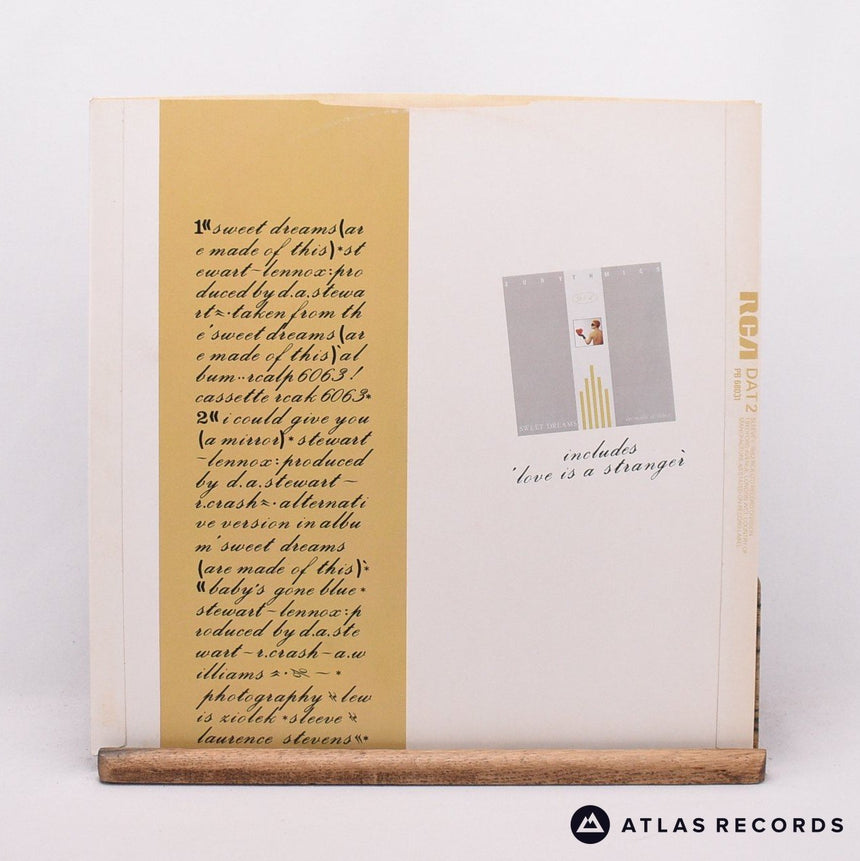 1 “sweet dreams (ar
e made of this) * st
ewart - lennox : pro
duced by d.a.stewa
rt ≈ · taken from th
e ‘sweet dreams (ar
e made of this)’ al
bum ·· rcalp 6063 !
cassette rcak 6063 *
2 “i could give you
(a mirror) * stewart
-lennox : produced
by d.a.stewart -
r.crash ≈ · alternati
ve version in albu
m ‘sweet dreams
(are made of this)’ *
“baby's gone blue *
stewart - lennox : p
roduced by d.a.ste
wart - r.crash - a.w
illiams ≈ · — *
photography lew
is ziolek * sleeve
laurence stevens “ *
EURYTHMICS
SWEET DREAMS
ARE MADE OF THIS
includes
‘love is a stranger’
RCA
DAT 2
PB 68031
ATLAS RECORDS